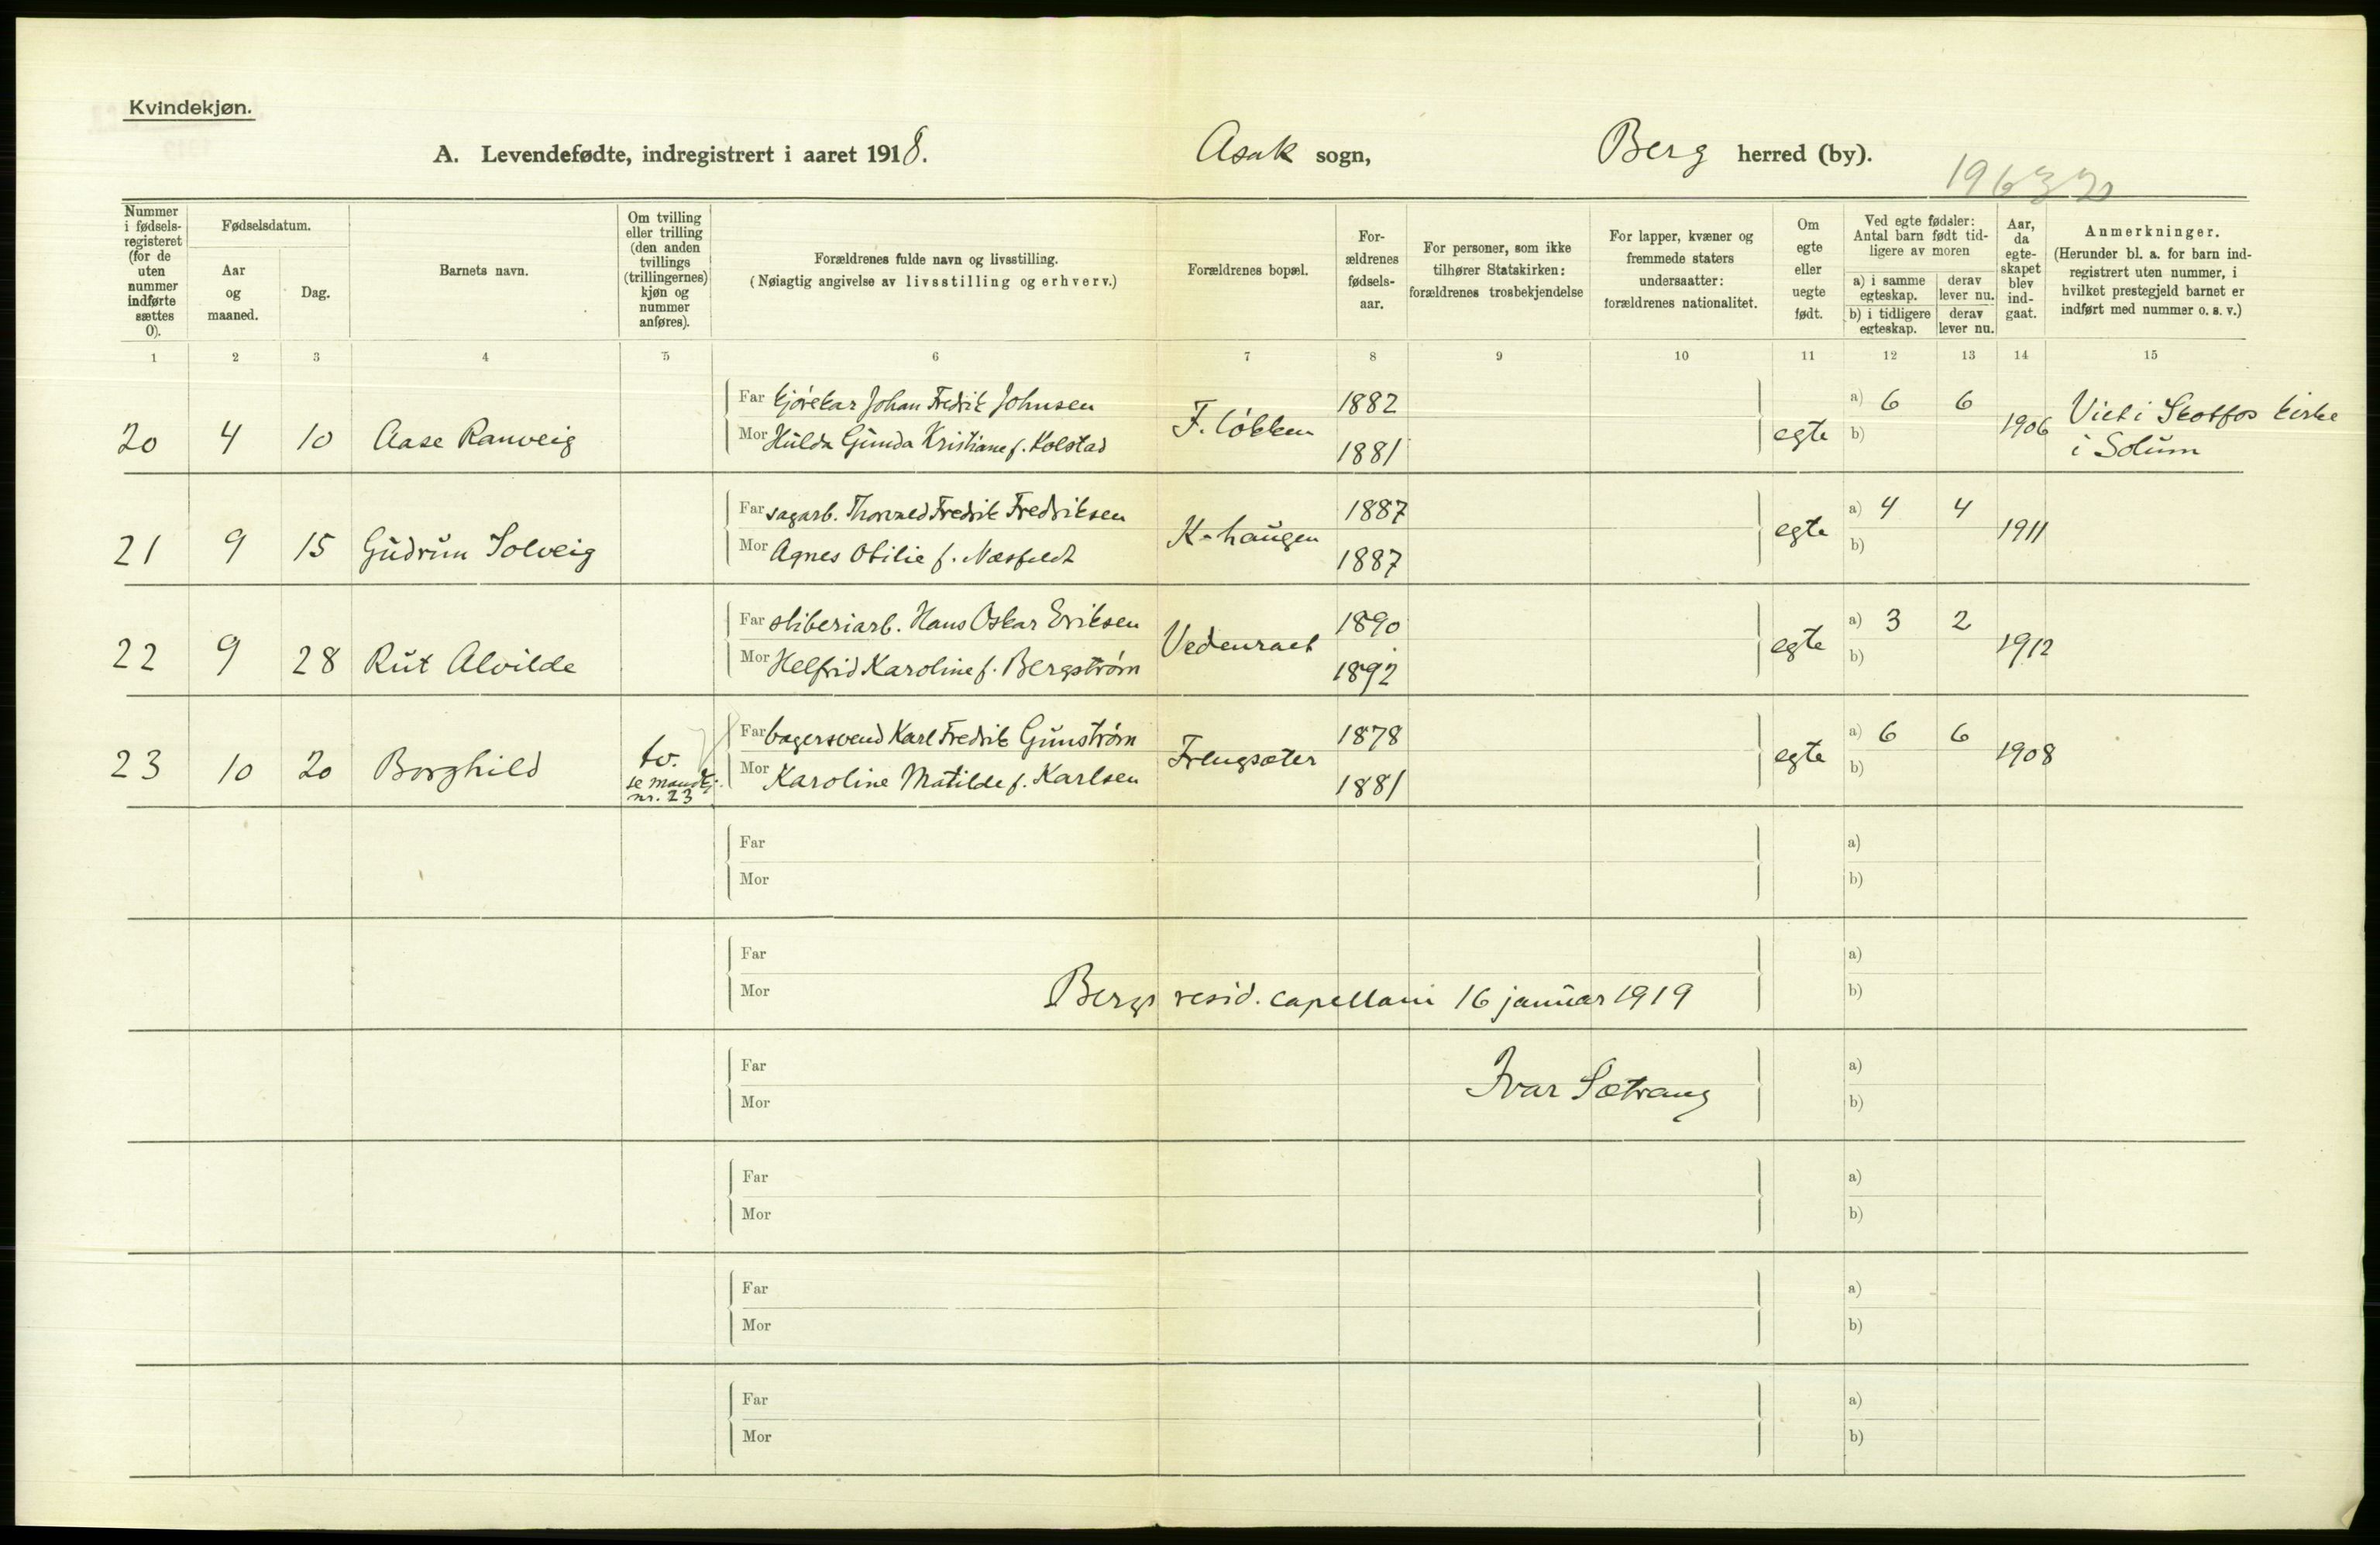 Kvindekjøn.
A. Levendefødte, indregistrert i aaret 1918. Asak sogn, Berg herred (by).
Nummer i fødsels-registeret (for de uten nummer indførte sættes 0).
Fødselsdatum.
Aar og maaned.
Dag.
Barnets navn.
Om tvilling eller trilling (den anden tvillings (trillingernes) kjøn og nummer anføres).
Forældrenes fulde navn og livsstilling.
(Nøiagtig angivelse av livsstilling og erhverv.)
Forældrenes bopæl.
For-ældrenes fødsels-aar.
For personer, som ikke tilhører Statskirken: forældrenes trosbekjendelse
For lapper, kvæner og fremmede staters undersaatter: forældrenes nationalitet.
Om egte eller uegte født.
Ved egte fødsler: Antal barn født tid-ligere av moren
a) i samme egteskap. derav lever nu.
b) i tidligere egteskap. derav lever nu.
Aar, da egte-skapet blev ind-gaat.
Anmerkninger.
(Herunder bl. a. for barn ind-registrert uten nummer, i hvilket prestegjeld barnet er indført med nummer o. s. v.)
1 2 3 4 5 6 7 8 9 10 11 12 13 14 15
Far kjørekar Johan Fredrik Johnsen 1882 a) 6 6 Viet i Skotfos kirke
20 4 10 Aase Ranveig F. løkken egte 1906
Mor Hulda Gunda Kristiane f. Kolstad 1881 b) i Solum
Far sagarb. Thorvald Fredrik Fredriksen 1887 a) 4 4
21 9 15 Gudrun Solveig K-haugen egte 1911
Mor Agnes Otilie f. Næsfeldt 1887 b)
Far sliberiarb. Hans Oskar Eriksen 1890 a) 3 2
22 9 28 Rut Alvilde egte 1912
Mor Helfrid Karoline f. Bergstrøm 1892 b)
Far bagersvend Karl Fredrik Gunstrøm 1878 a) 6 6
23 10 20 Borghild tv. se mandkj. nr. 23 egte 1908
Mor Karoline Matilde f. Karlsen 1881 b)
Far a)
Mor b)
Far a)
Mor b)
Bergs resid. capellani 16 januar 1919
Far a)
Ivar Sætrang
Mor b)
Far a)
Mor b)
Far a)
Mor b)
Far a)
Mor b)